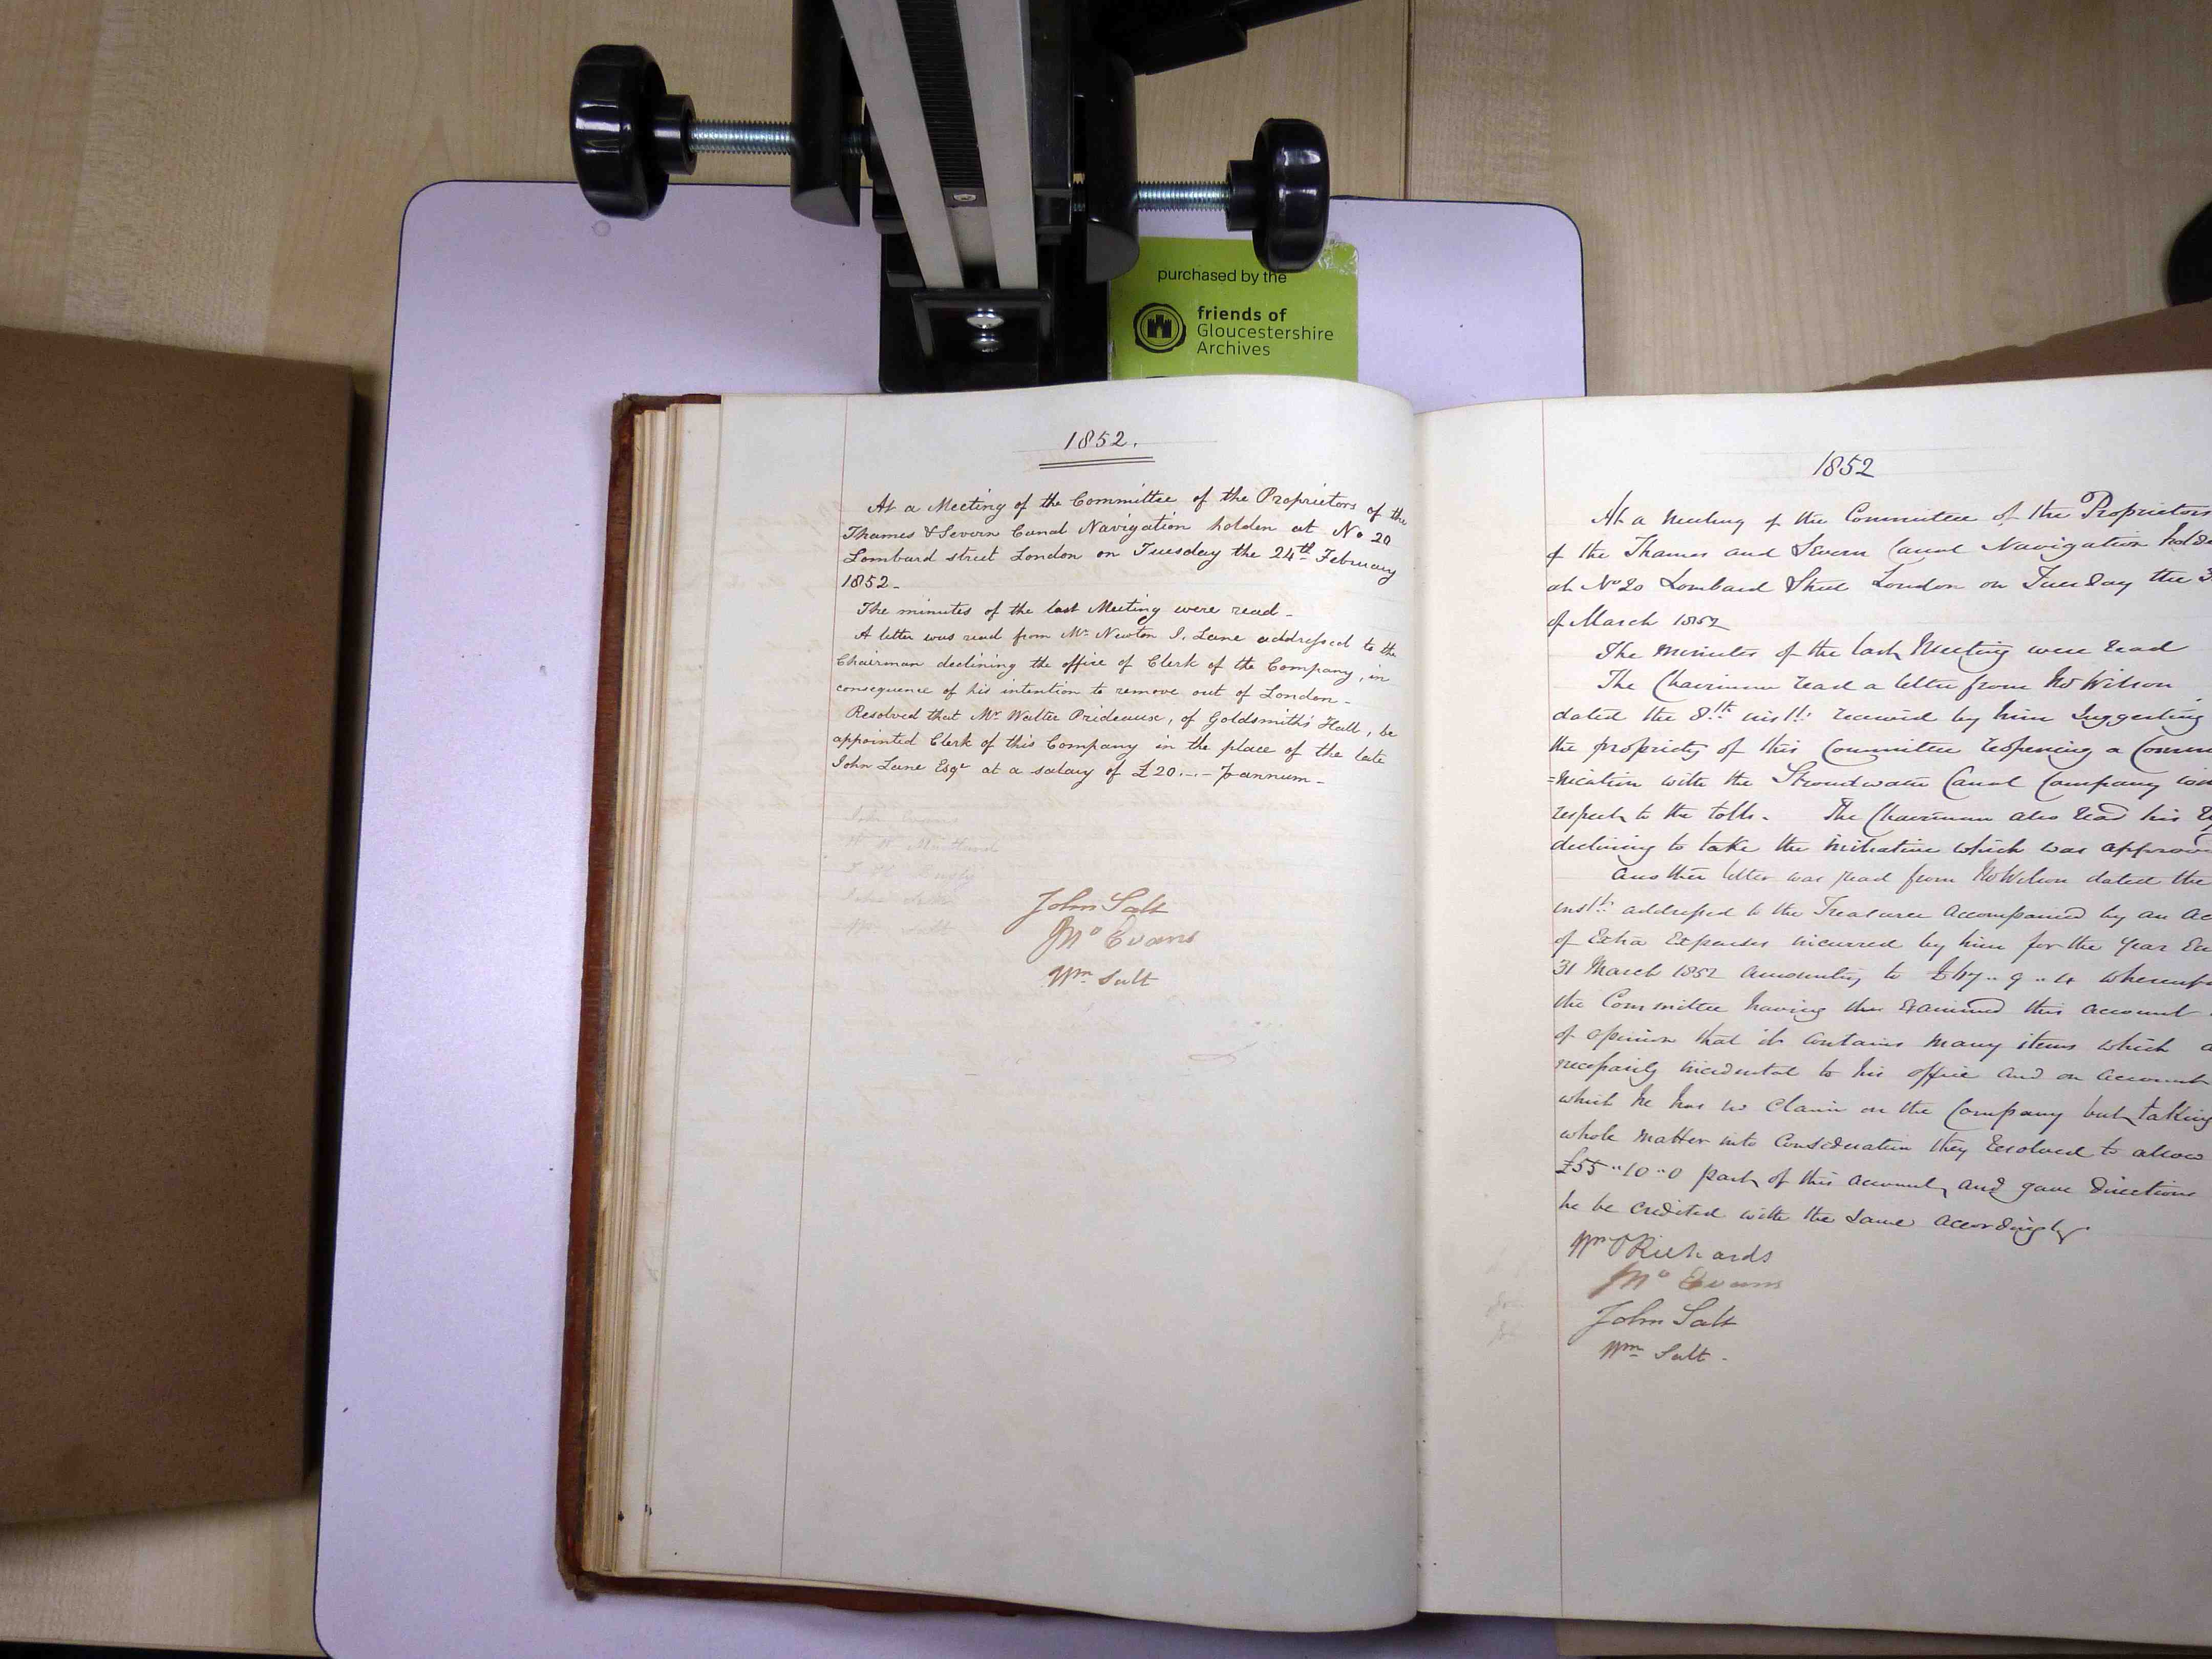 purchased by the
friends of
Gloucestershire
Archives
1852.
At a Meeting of the Committee of the Proprietors of the
Thames & Severn Canal Navigation holden at No 20
Lombard street London on Tuesday the 24th February
1852-
The minutes of the last Meeting were read-
A letter was read from Mr Newton I. Lane addressed to the
Chairman declining the office of Clerk of the Company, in
consequence of his intention to remove out of London-
Resolved that Mr Walter Prideaux, of Goldsmith's Hall, be
appointed Clerk of this Company in the place of the late
John Lane Esqr at a salary of £20.-.- P annum-
John Salt
Evans
Wm Salt
1852
At a Meeting of the Committee of the Proprietors
of the Thames and Severn Canal Navigation
at No 20 Lombard Street London on Tuesday the 3
of March 1852
The Minutes of the last Meeting were read
The Chairman read a letter from Mr Wilson
dated the 8th inst: received by him suggesting
the propriety of this Committee reopening a
=nication with the Stroudwater Canal Company
respect to the tolls. The Chairman also read his
declining to take the initiative which was
Another letter was read from Mr Wilson dated the
inst: addressed to the Treasurer accompanied by an
of Extra Expenses incurred by him for the year
31 March 1852 amounting to
the Committee having examined this account
of opinion that it contains many items which
necessarily incidental to his office and on account
which he has no claim on the Company but taking
whole matter into Consideration they resolved to allow
£55"10"0 part of this account, and gave directions
he be credited with the same accordingly.
Wm Richards
Evans
John Salt
Wm Salt-